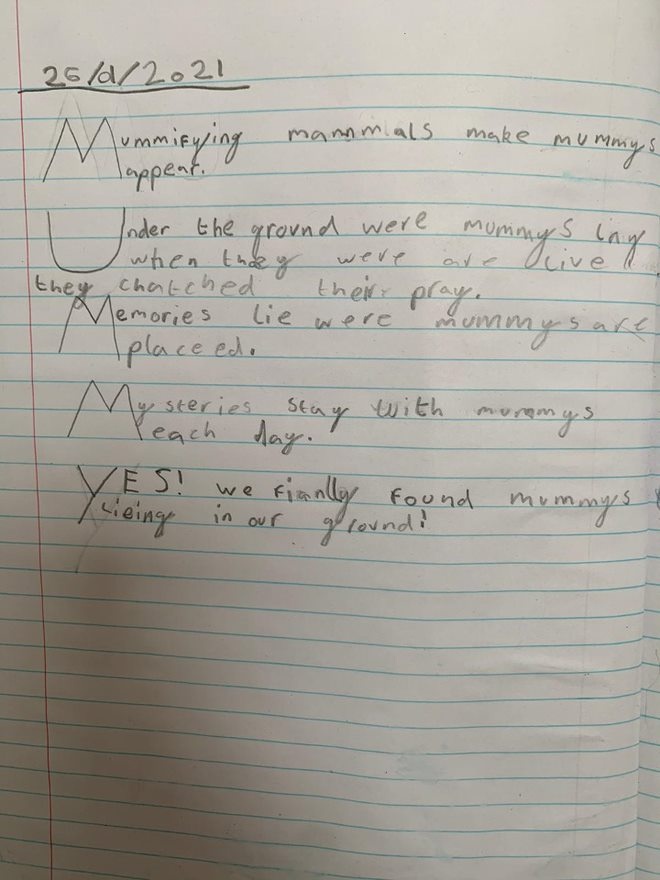 25/d/2021
Mummifying mammials make mummys
appear.
Under the ground were mummys lay
when they were are live
they chatched their pray.
Memories lie were mummys are
placeed.
Mysteries stay with mummys
each day.
YES! we fianlly found mummys
Lieing in our ground!